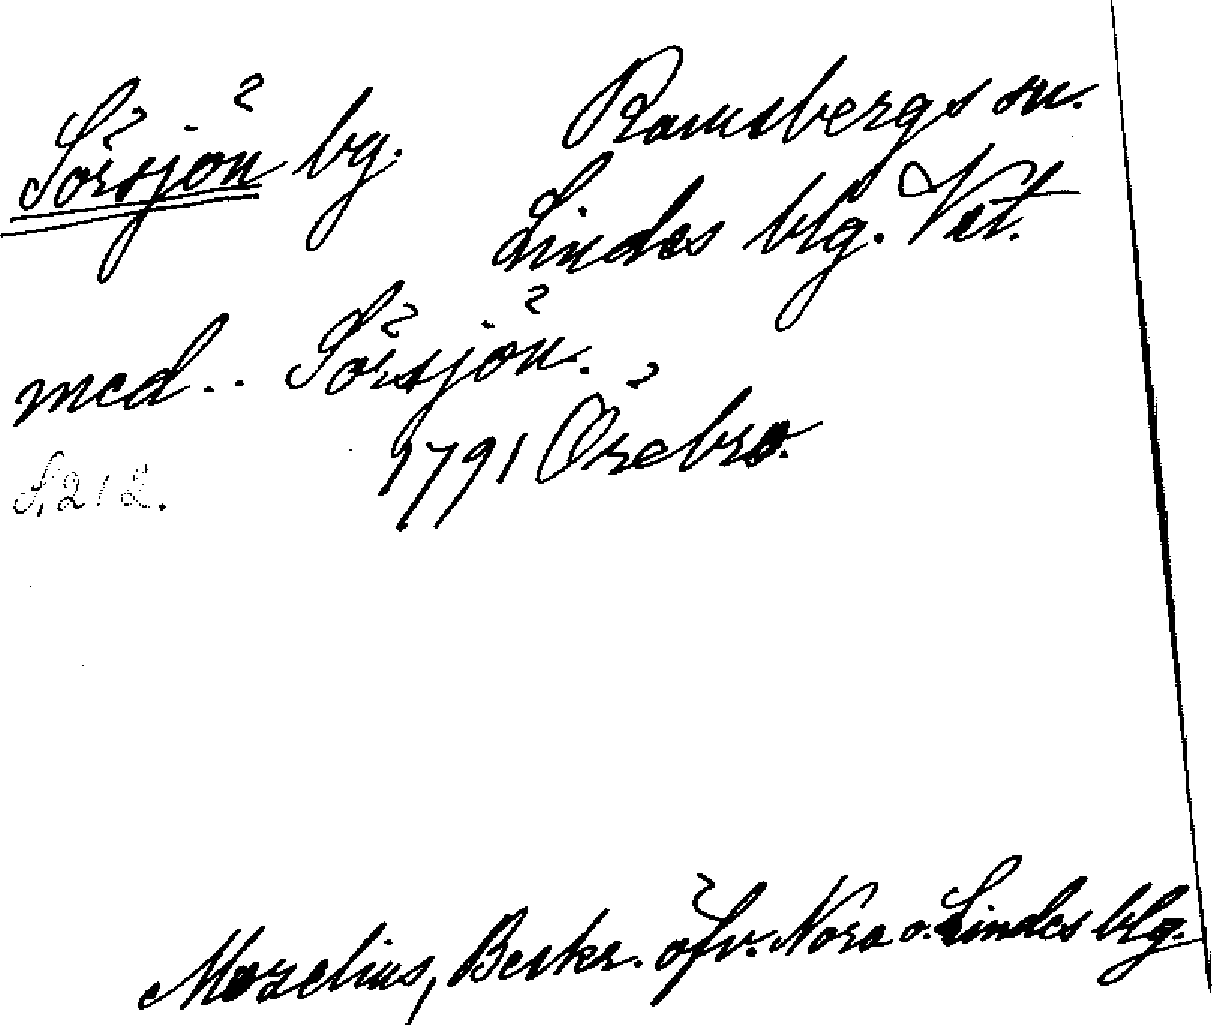 Sörsjön by. Ramsbergs sn.
Lindes blg. Vstl.
med.. Sörsjön.
1791 Örebro.
S. 212.
Morelius, Beskr. öfv. Nora o. Lindes blg.